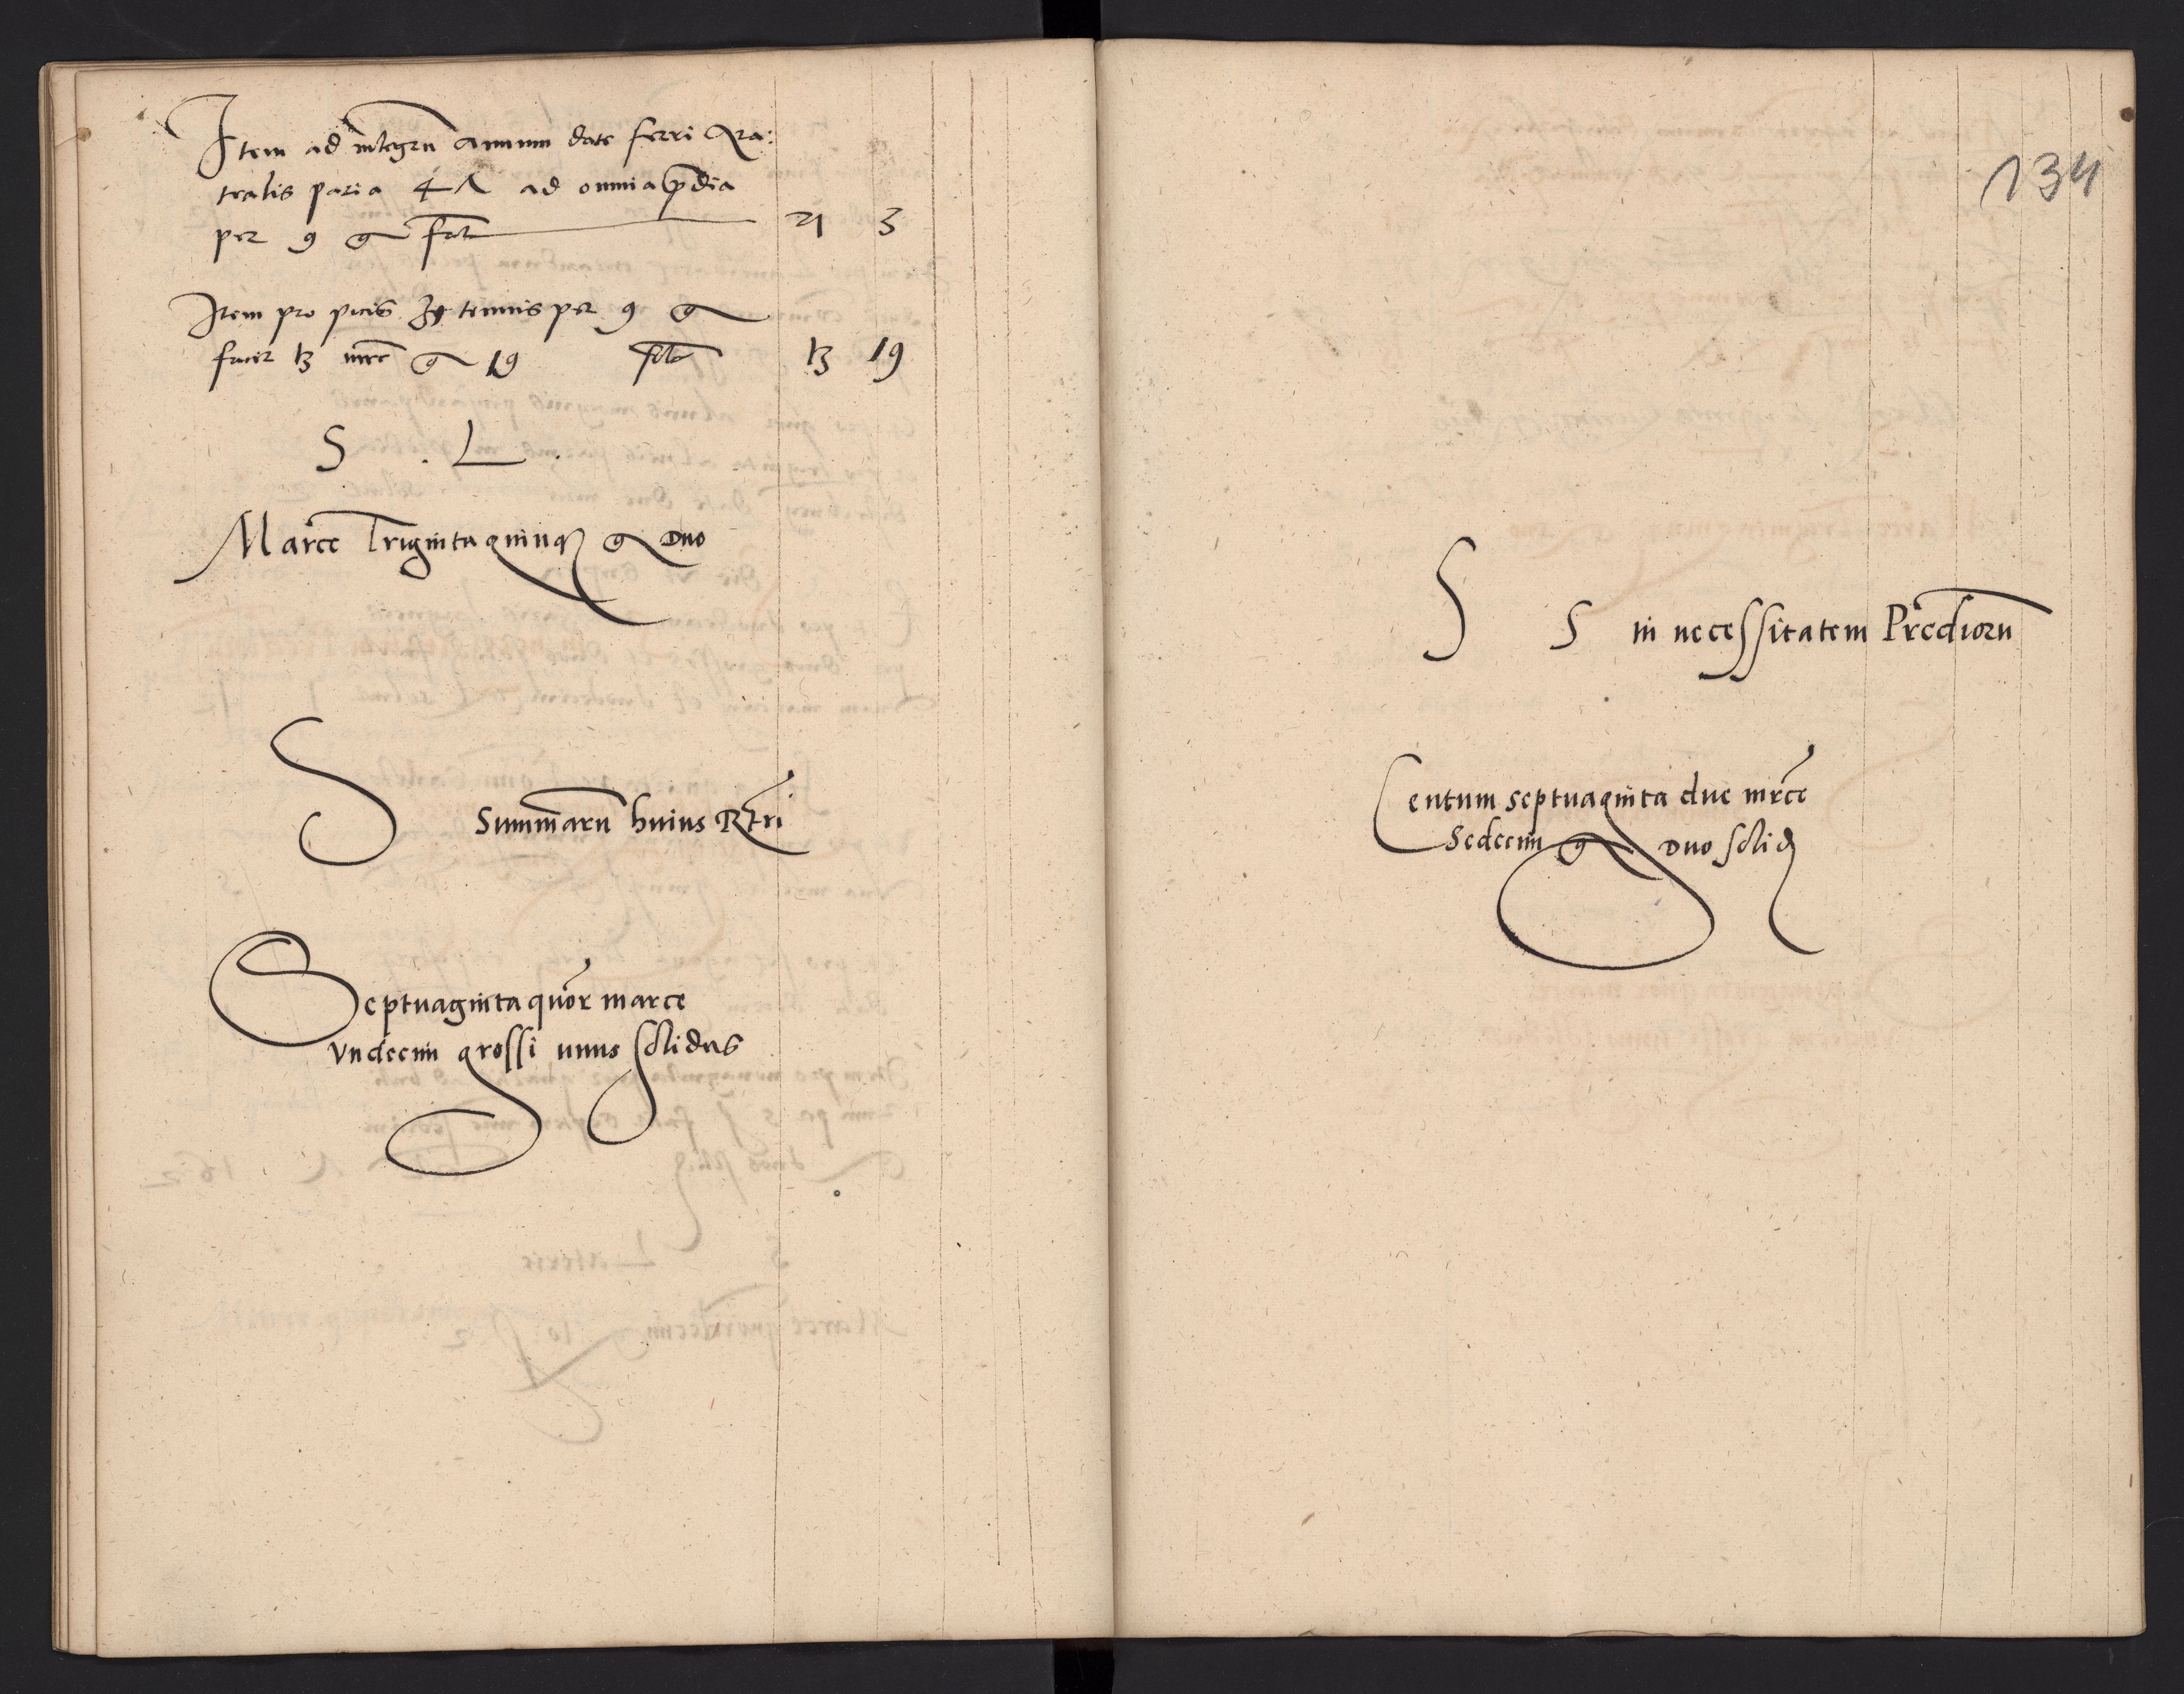 Item ad integru annum date ferri Ara:
tralis paria 47 ad omnia pdia
per 9 g fct 21 3
Item pro picis tennis per 9 g
facit 13 mrc g 19 fct 13 19
S . L .
Marce Triginta quinq g Duo
S Summaru huius Rtri
Septuaginta quor marce
Vndecim grossi unus solidus
134
S S in necessitatem Predioru
Centum septuaginta due mrce
Sedecim g Duo solid